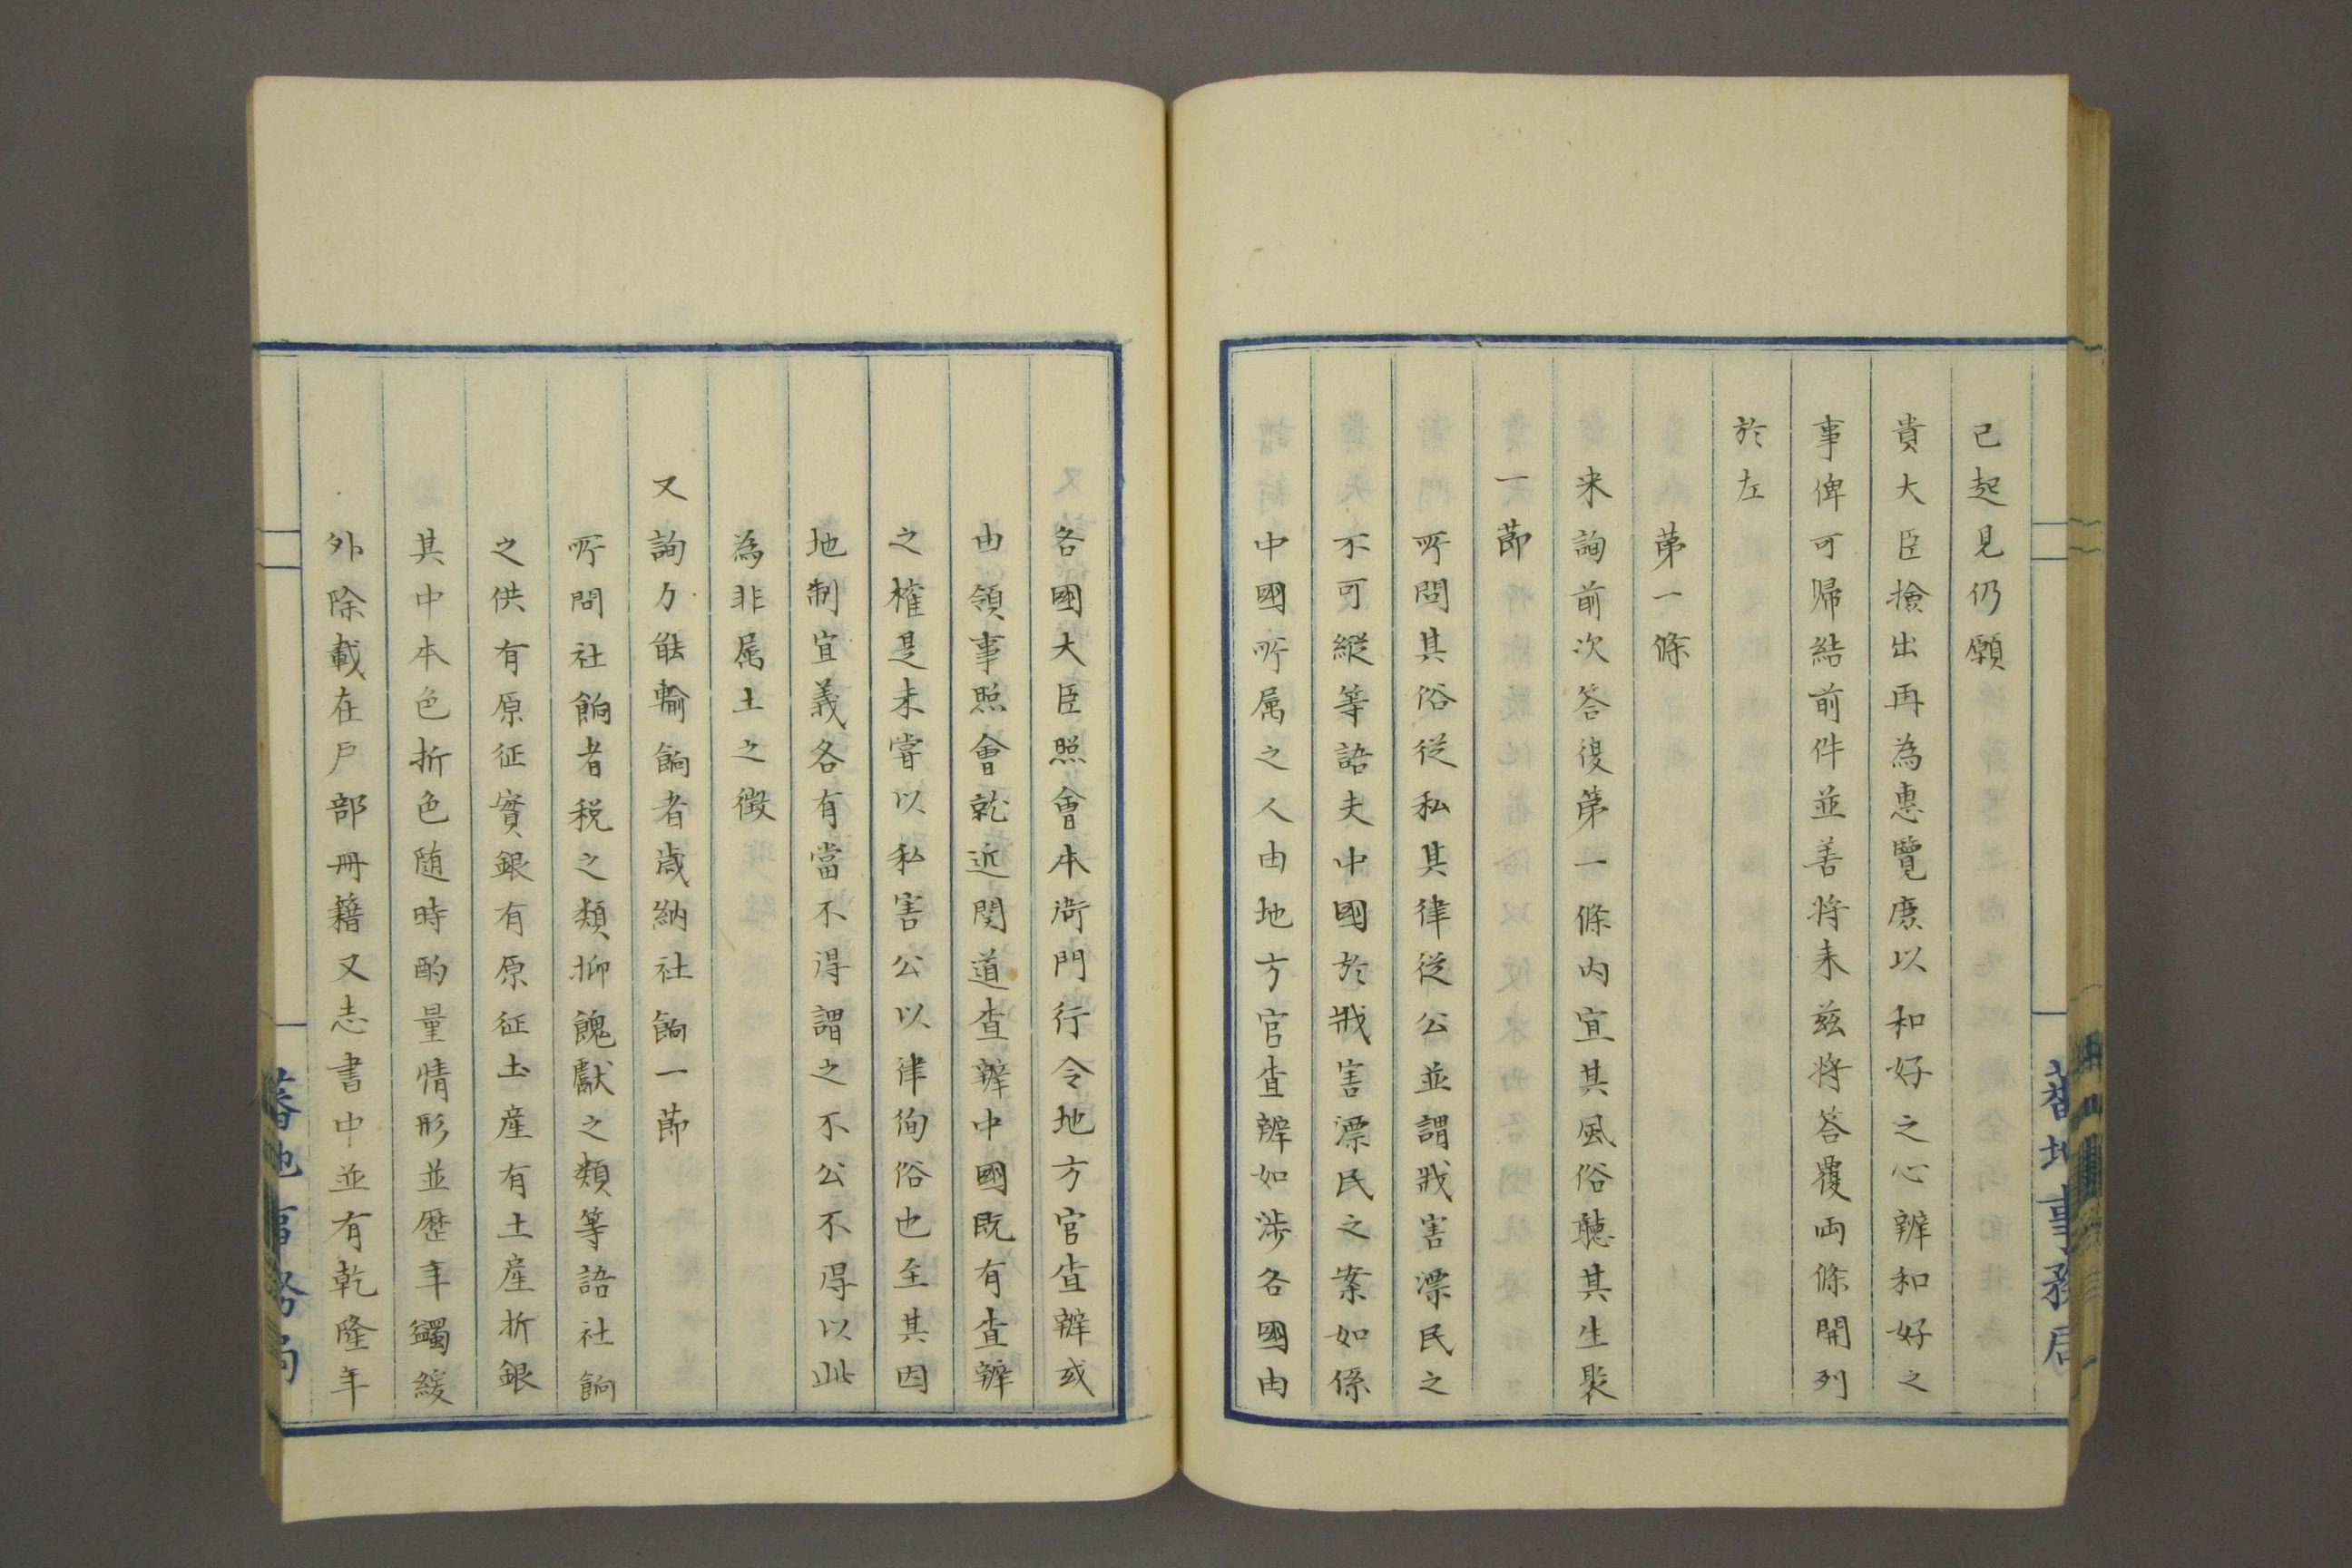 已起見仍願
貴大臣撿出再為惠覽庶以和好之心辦和好之
事俾可歸結前件並善将来兹將答覆両條開列
於左
第一條
来詢前次答復第一條内宜其風俗聴其生聚
一節
所問其俗從私其律從公並謂戕害漂民之
不可縱等語夫中國於戕害漂民之案如係
中國所属之人由地方官查辦如涉各國由
各國大臣照會本衙門行令地方官查辦或
由領事照會就近関道查辦中國既有查辦
之權是未嘗以私害公以律徇俗也至其因
地制宜義各有當不得謂之不公不得以此
為非属土之徴
又詢力能輸餉者歳納社餉一節
所問社餉者税之類抑餽獻之類等語社餉
之供有原征實銀有原征土産有土産折銀
其中本色折色随時酌量情形並歴年蠲緩
外除載在戸部冊籍又志書中並有乾隆年
蕃地事務局
蕃地事務局